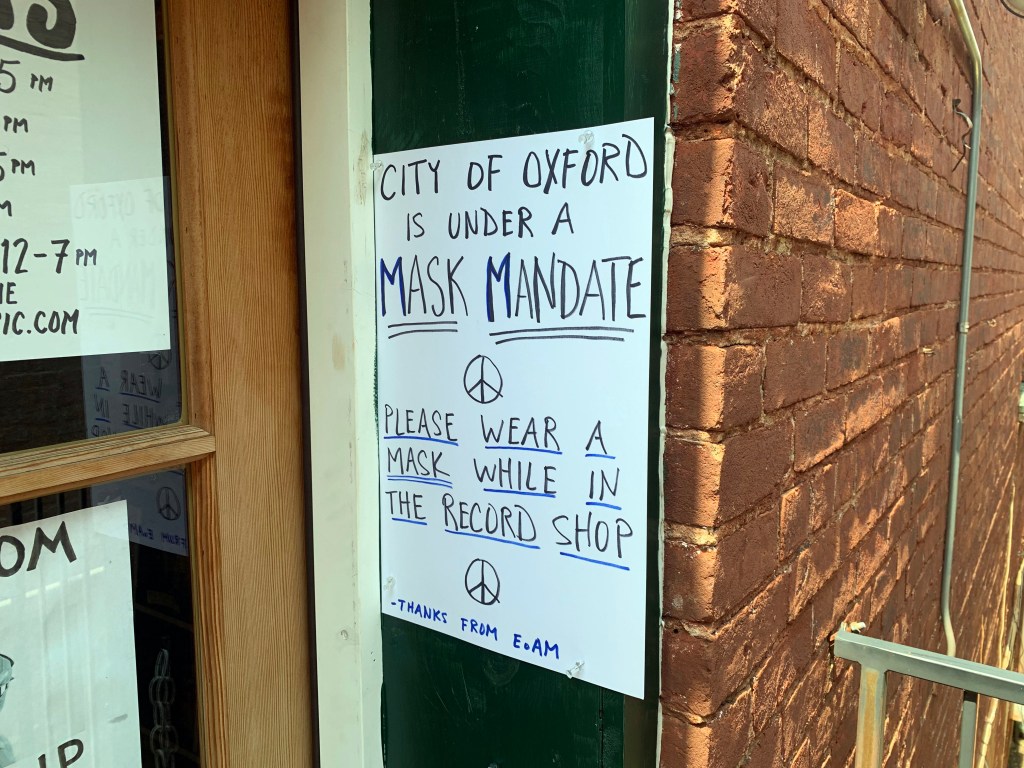 5 PM
PM
5PM
M
12-7 PM
IC.COM
OM
IP
CITY OF OXFORD
IS UNDER A
MASK MANDATE
PLEASE WEAR A
MASK WHILE IN
THE RECORD SHOP
-THANKS FROM E.AM